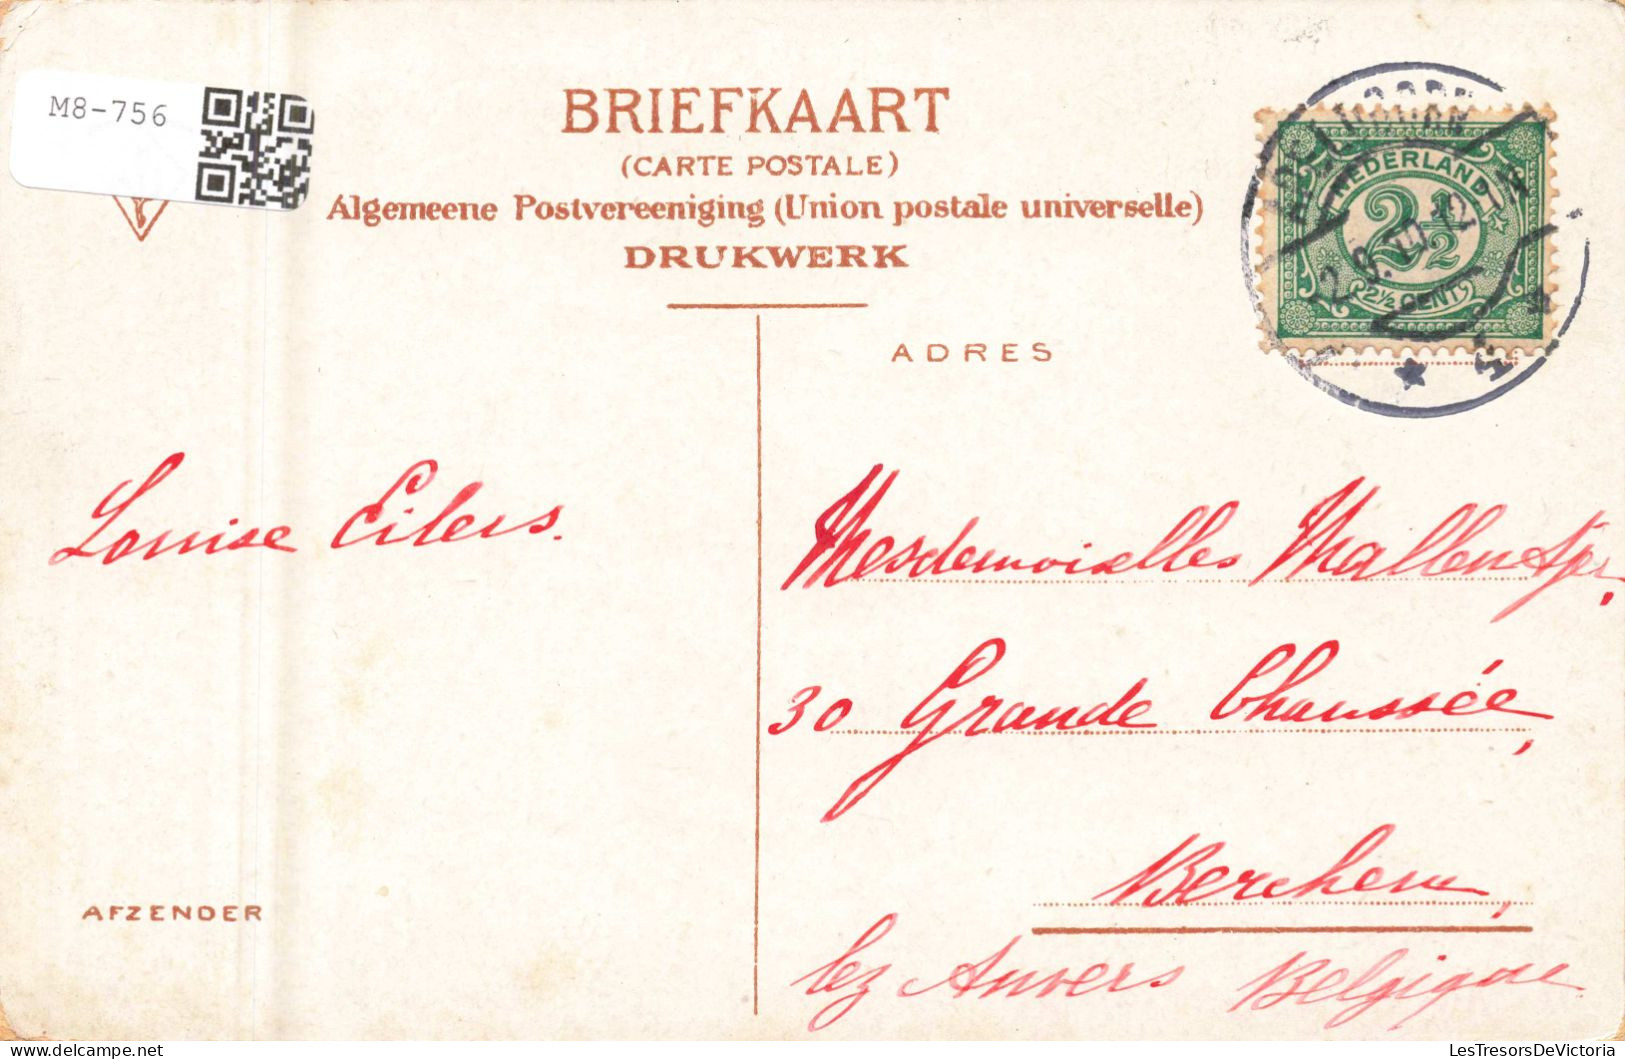 M8-756
BRIEFKAART
(CARTE POSTALE)
Algemeene Postvereeniging (Union postale universelle)
DRUKWERK
ADRES
NEDERLAND
2½
2½ CENT
12
Louise Eilers.
Mesdemoiselles
30 Grande Chaussée,
Berchem,
lez Anvers Belgique
AFZENDER
LesTresorsDeVictoria